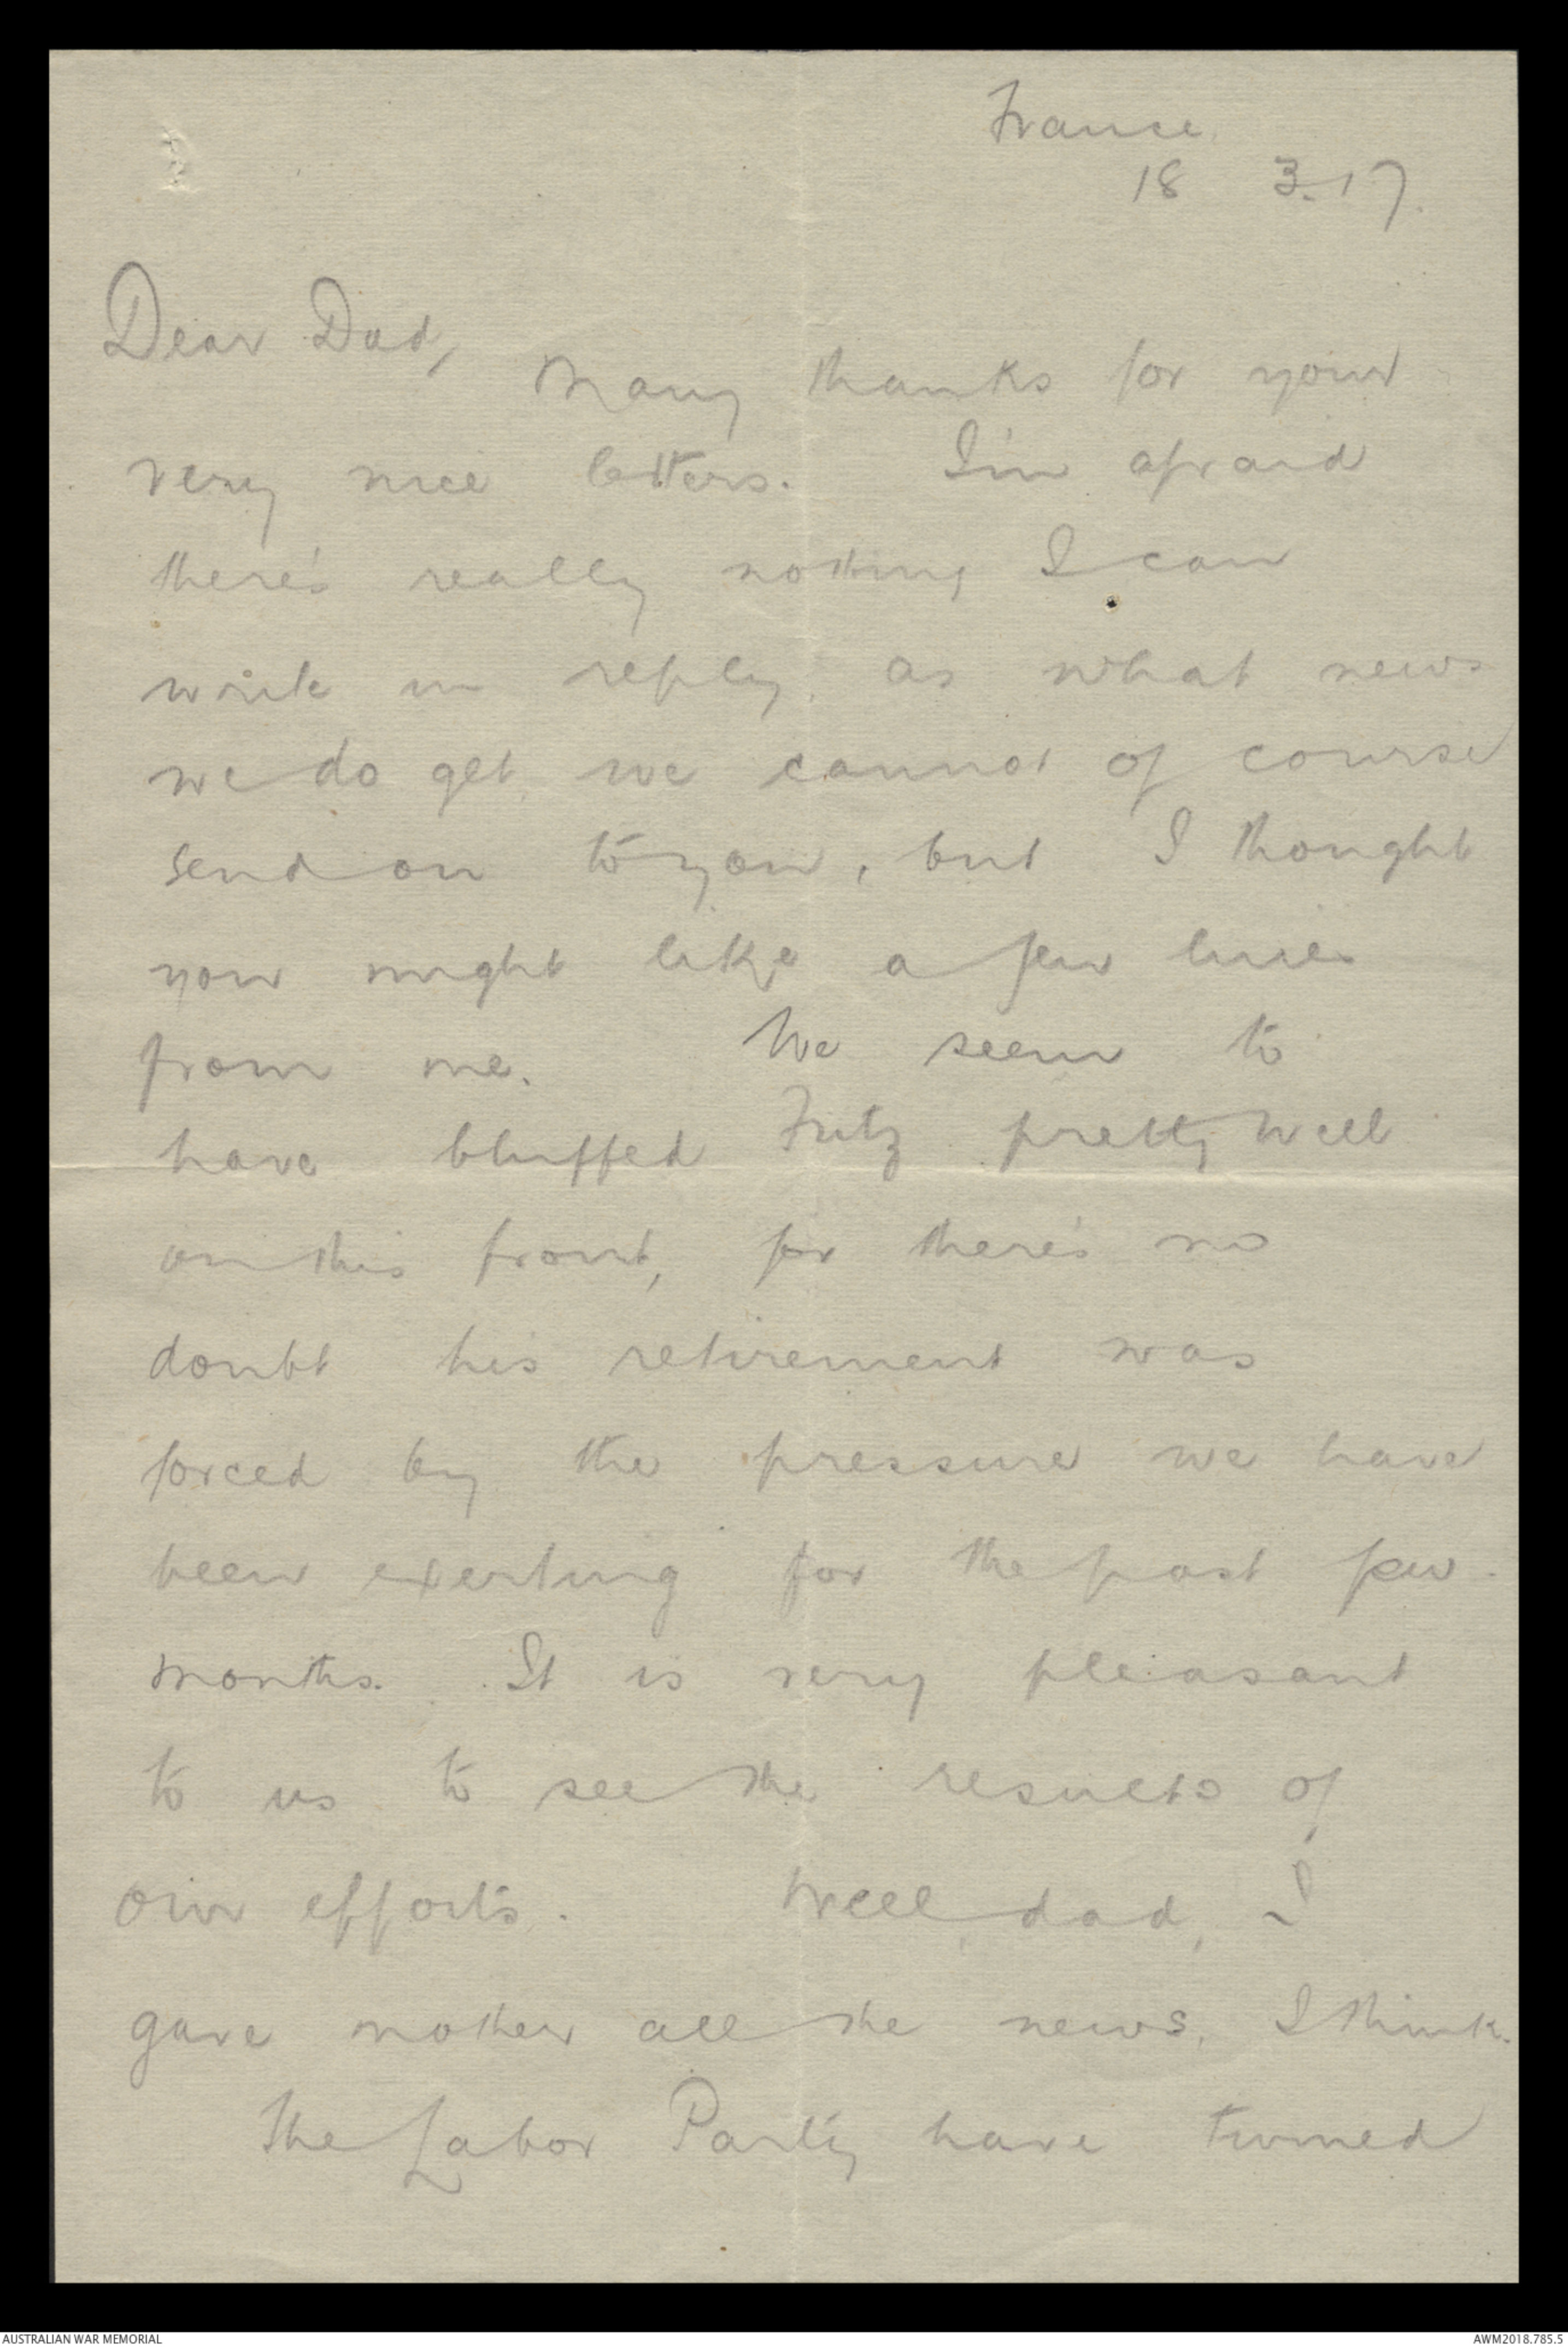 France.
18 3.17.
Dear Dad,
Many thanks for your
very nice letters. I'm afraid
there's really nothing I can
write in reply, as what news
we do get, we cannot of course
send on to you, but I thought
you might like a few lines
from me. We seem to
have bluffed Fritz pretty well
on this front, for there's no
doubt his retirement was
forced by the pressure we have
been exerting for the past few
months. It is very pleasant
to us to see the results of
our efforts. Well, dad, I
gave mother all the news, I think.
The Labor Party have turned
AUSTRALIAN WAR MEMORIAL
AWM2018.785.5